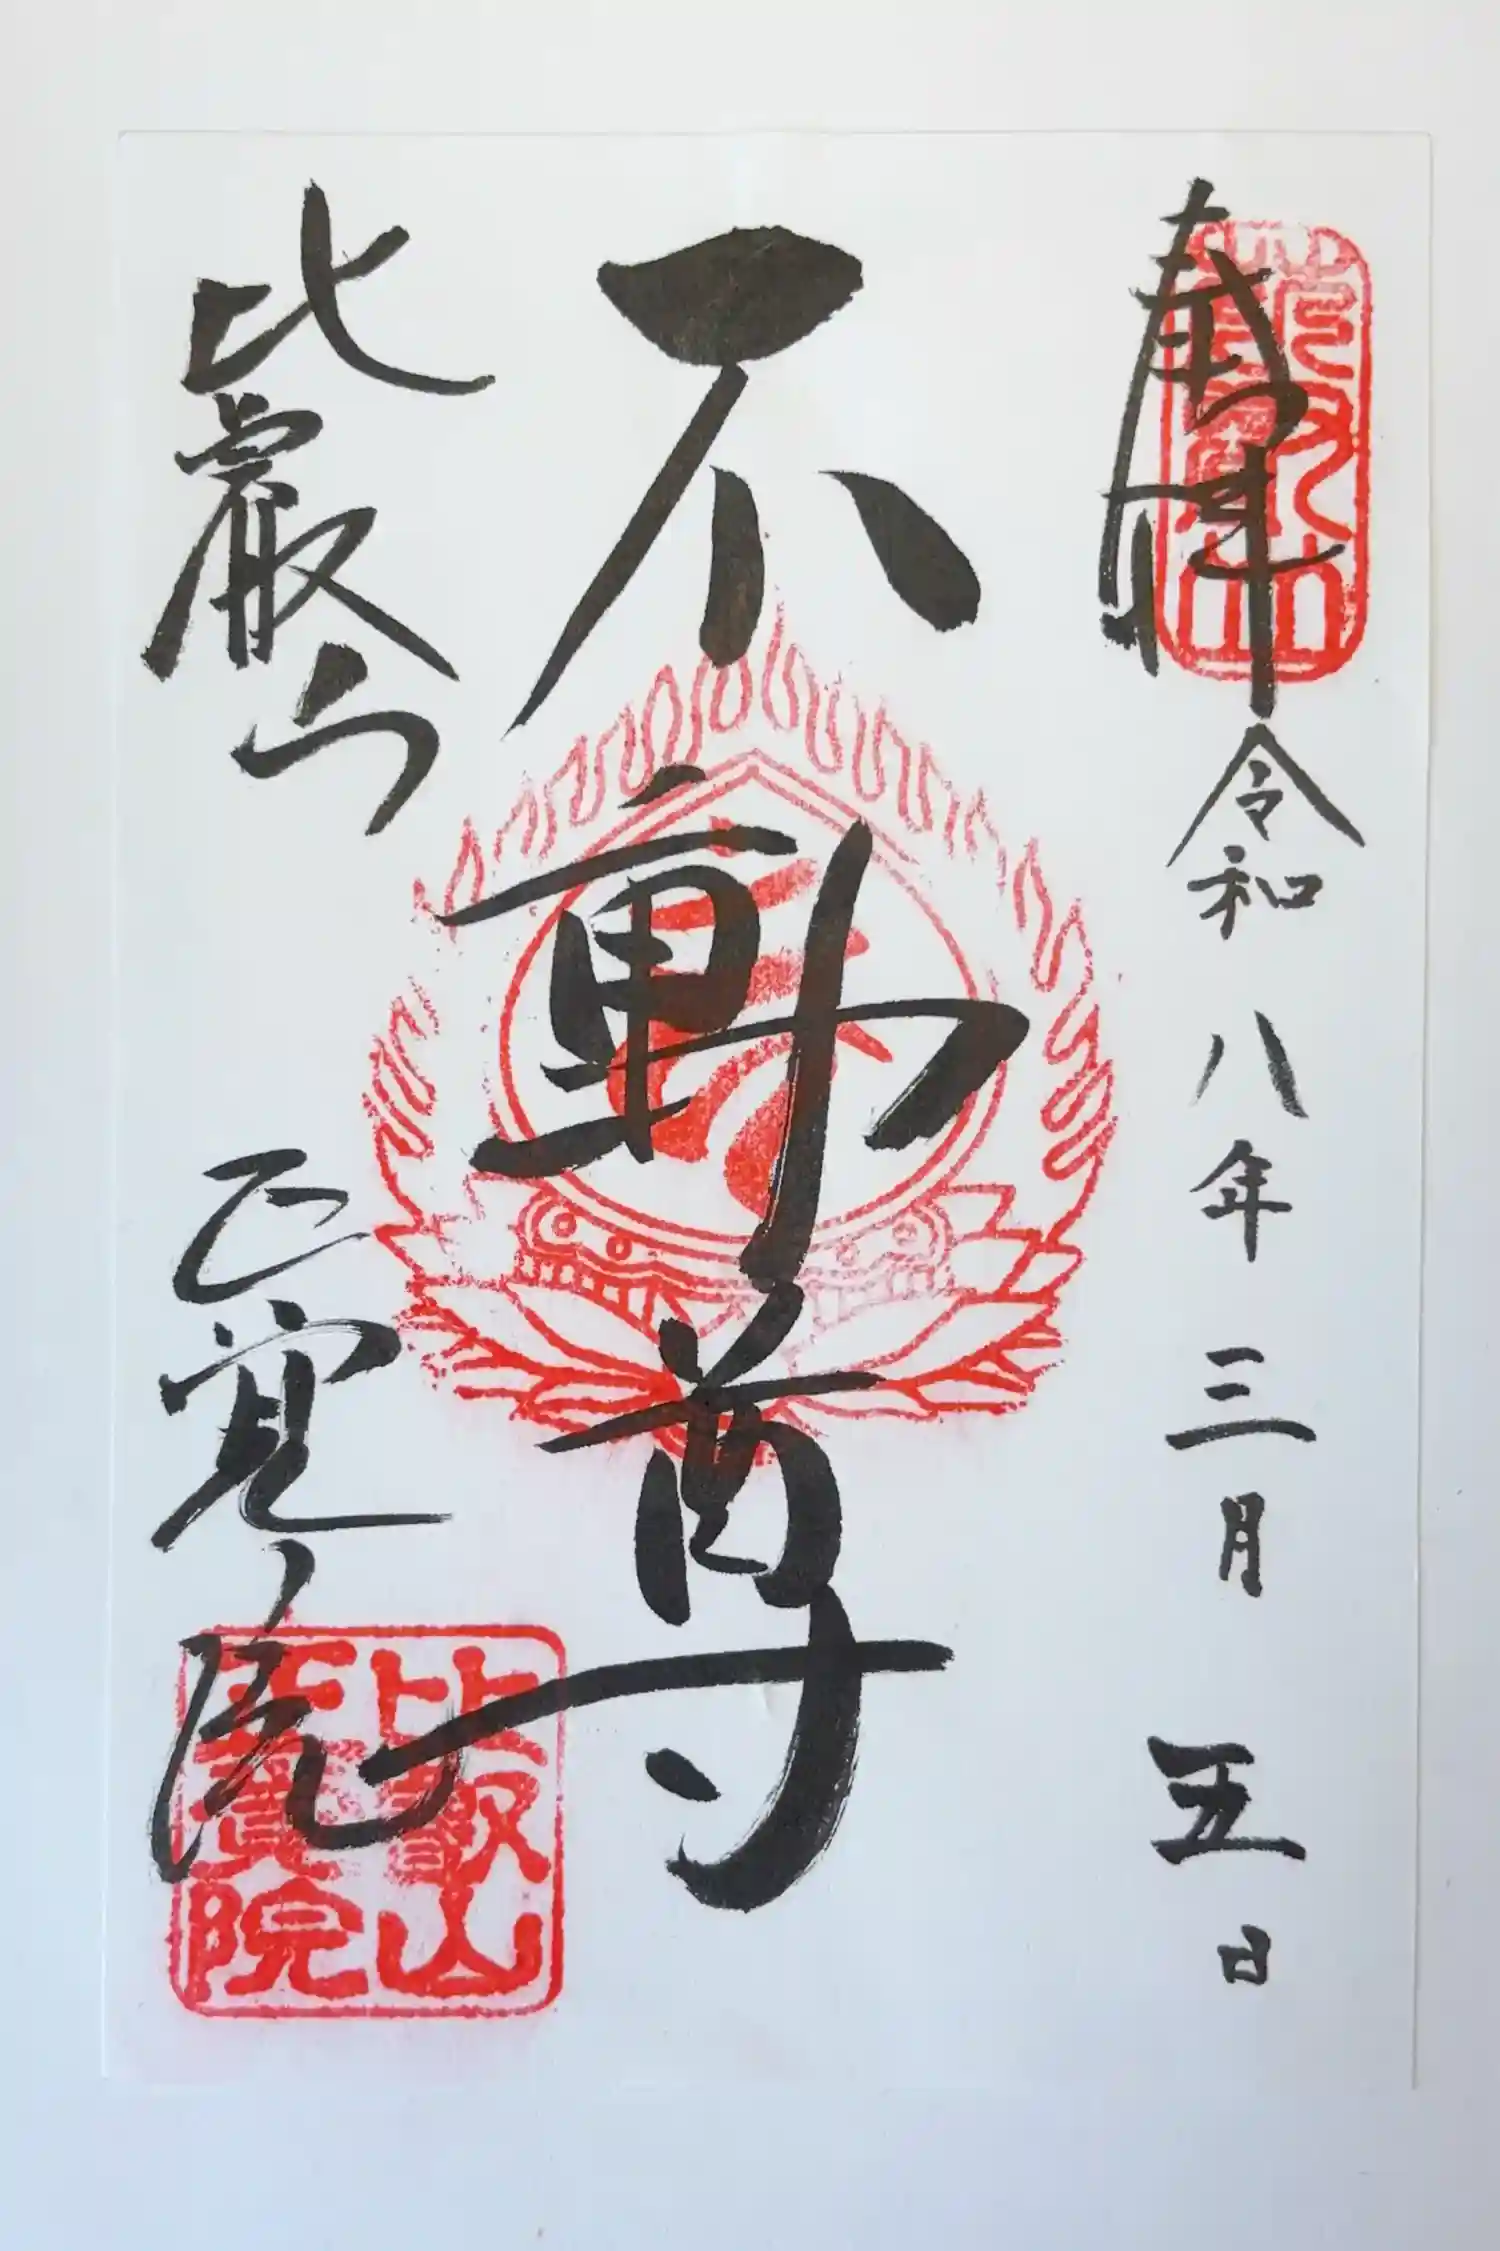 奉拝 令和八年三月五日
不動尊
比叡山 正覚院
比叡山